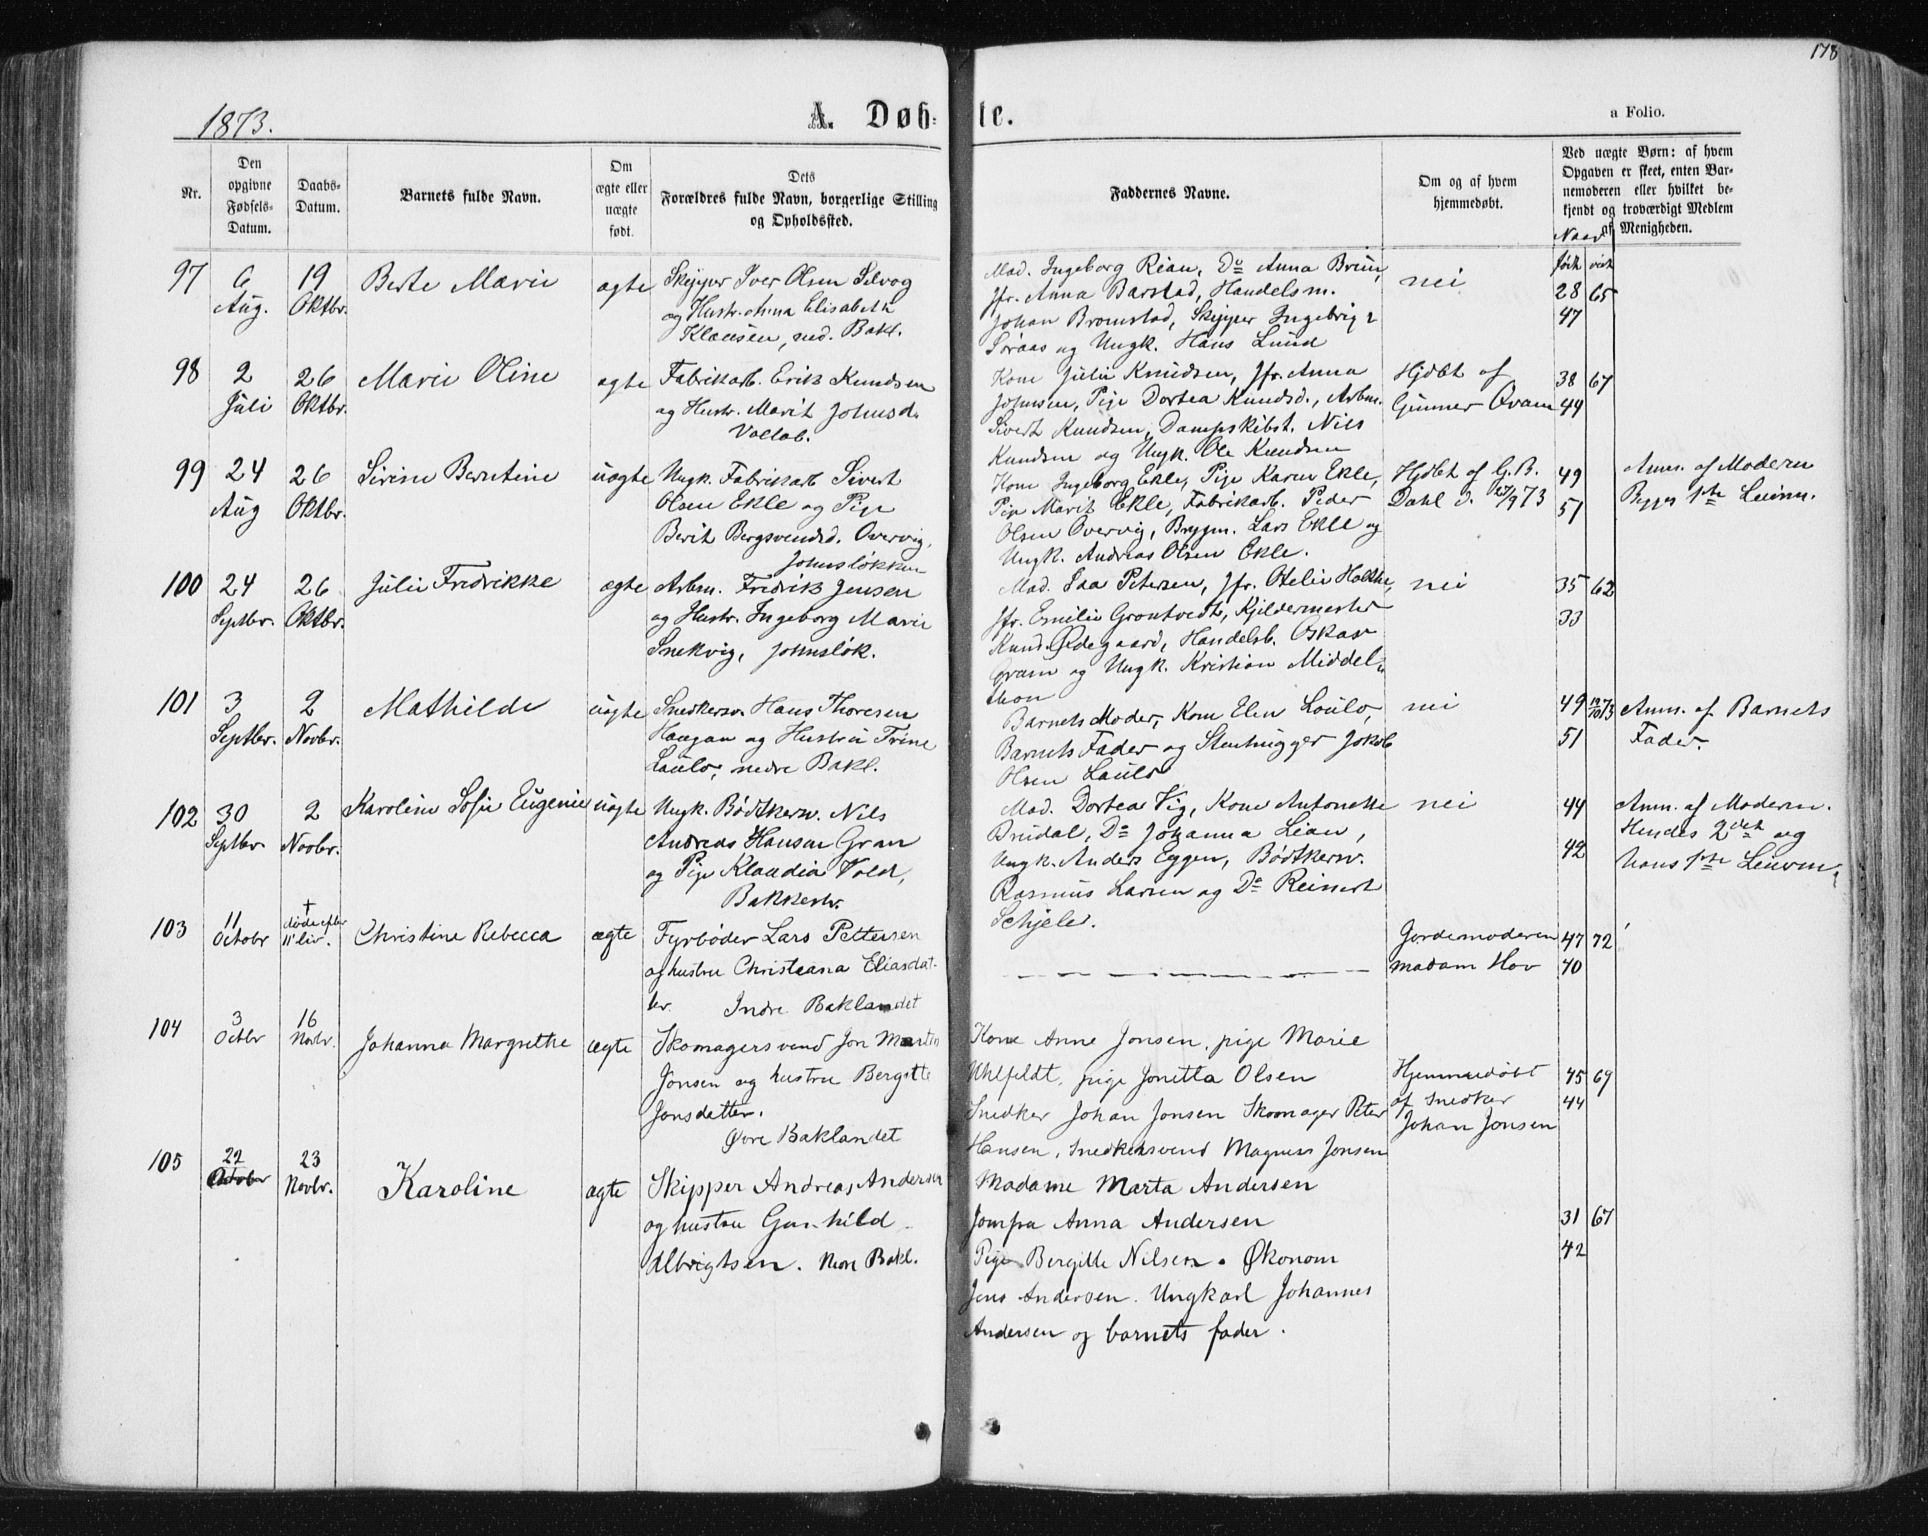 178
1873.
A. Døbte.
a Folio.
Nr.
Den opgivne Fødsels-Datum.
Daabs-Datum.
Barnets fulde Navn.
Om ægte eller uægte født.
Dets Forældres fulde Navn, borgerlige Stilling og Opholdssted.
Faddernes Navne.
Om og af hvem hjemmedøbt.
Ved uægte Børn: af hvem Opgaven er skeet, enten Barnemoderen eller hvilket bekjendt og troværdigt Medlem af Menigheden.
Naar
født viet
97
6 Aug.
19 Oktbr.
Berte Marie
ægte
Skipper Iver Olsen Selvog
og Hustr. Anna Elisabeth
Klausen, ned. Bakl.
Mad. Ingeborg Rian, Do Anna Bruun,
Jfr. Anna Barstad, Handelsm.
Johan Bromstad, Skipper Ingebrigt
Soraas og Ungk. Hans Lund
nei
28 65
47
98
2 Juli
26 Oktbr.
Marie Oline
ægte
Fabrikarb. Erik Knudsen
og Hustr. Marit Johnsd.
Vollab.
Kone Julie Knudsen, Jfr. Anna
Johnsen, Pige Dortea Knudsd., Arbm.
Sivert Knudsen, Dampskibst. Nils
Knudsen og Ungk. Ole Knudsen
Hjdbt af
Gunner Qvam
38 67
44
99
24 Aug
26 Oktbr.
Sirine Berntine
uægte
Ungk. Fabrikarb Sivert
Olsen Ekle og Pige
Berit Bergsvendsd. Overvig,
Johnsløkken
Kone Ingeborg Ekle, Pige Karen Ekle,
Pige Marit Ekle, Fabrikarb. Peder
Olsen Overvig, Brygm. Lars Ekle og
Ungk. Andreas Olsen Ekle.
Hjdbt af G. B.
Dahl d. 27/9 73
49
51
Anm. af Modern
Begges 1ste Leierm.
100
24 Septbr.
26 Oktbr.
Julie Fredrikke
ægte
Arbm. Fredrik Jensen
og Hustr. Ingeborg Marie
Snekvig, Johnsløk.
Mad. Saa Petersen, Jfr. Otelie Holthe,
Jfr. Emilie Grontvedt, Kjeldermester
Knud Ødegaard, Handelsb. Oskar
Gram og Ungk. Kristian Middel-
thon
nei
35 62
33
101
3 Septbr.
2 Novbr.
Mathilde
uægte
Snedkersv. Hans Thoresen
Haugan og Hustru Trine
Laulo, nedre Bakl.
Barnets Moder, Kone Elen Loulo,
Barnets Fader og Stenhugger Jakob
Olsen Laulo
nei
49 12/10 73
51
Anm. af Barnets
Fader.
102
30 Septbr.
2 Novbr.
Karoline Sofie Eugenie
uægte
Ungk. Bødtkersv. Nils
Andreas Hansen Gran
og Pige Klaudia Vold,
Bakkestr.
Mad. Dortea Vig, Kone Antonette
Brudal, Do Johanna Lian,
Ungk. Anders Eggen, Bødtkersv.
Rasmus Larsen og Do Reinert
Schjele.
nei
44
42
Anm. af Modern.
Hendes 2det og
hans 1ste Leierm.
103
11 Octobr
† døde efter 11' liv.
Christine Rebecca
ægte
Fyrbøder Lars Pettersen
og hustru Christeana Eliasdat-
ter. Indre Baklandet
Gordemoderen
madam Hov
47 72
40
104
3 Octbr
16 Novbr.
Johanna Margrethe
ægte
Skomagersvend Jon Martin
Jonsen og hustru Bergitte
Jonsdatter.
Øvre Baklandet
Kone Anne Jonsen, pige Marie
Uhlfeldt, pige Jonetta Olsen
Snedker Johan Jonsen Skomager Peter
Hansen, Snedkersvend Magnus Jonsen
Hjemmedøbt
af Snedker
Johan Jonsen
45 69
44
105
22 Octobr
23 Novbr.
Karoline
ægte
Skipper Andreas Andersen
og hustru Gunhild
Albrigtsen. Nere Bakl.
Madame Marta Andersen
Jomfru Anna Andersen
Pige Bergitte Nilsen. Økonom
Jens Andersen. Ungkarl Johannes
Andersen og barnets fader.
31 67
42